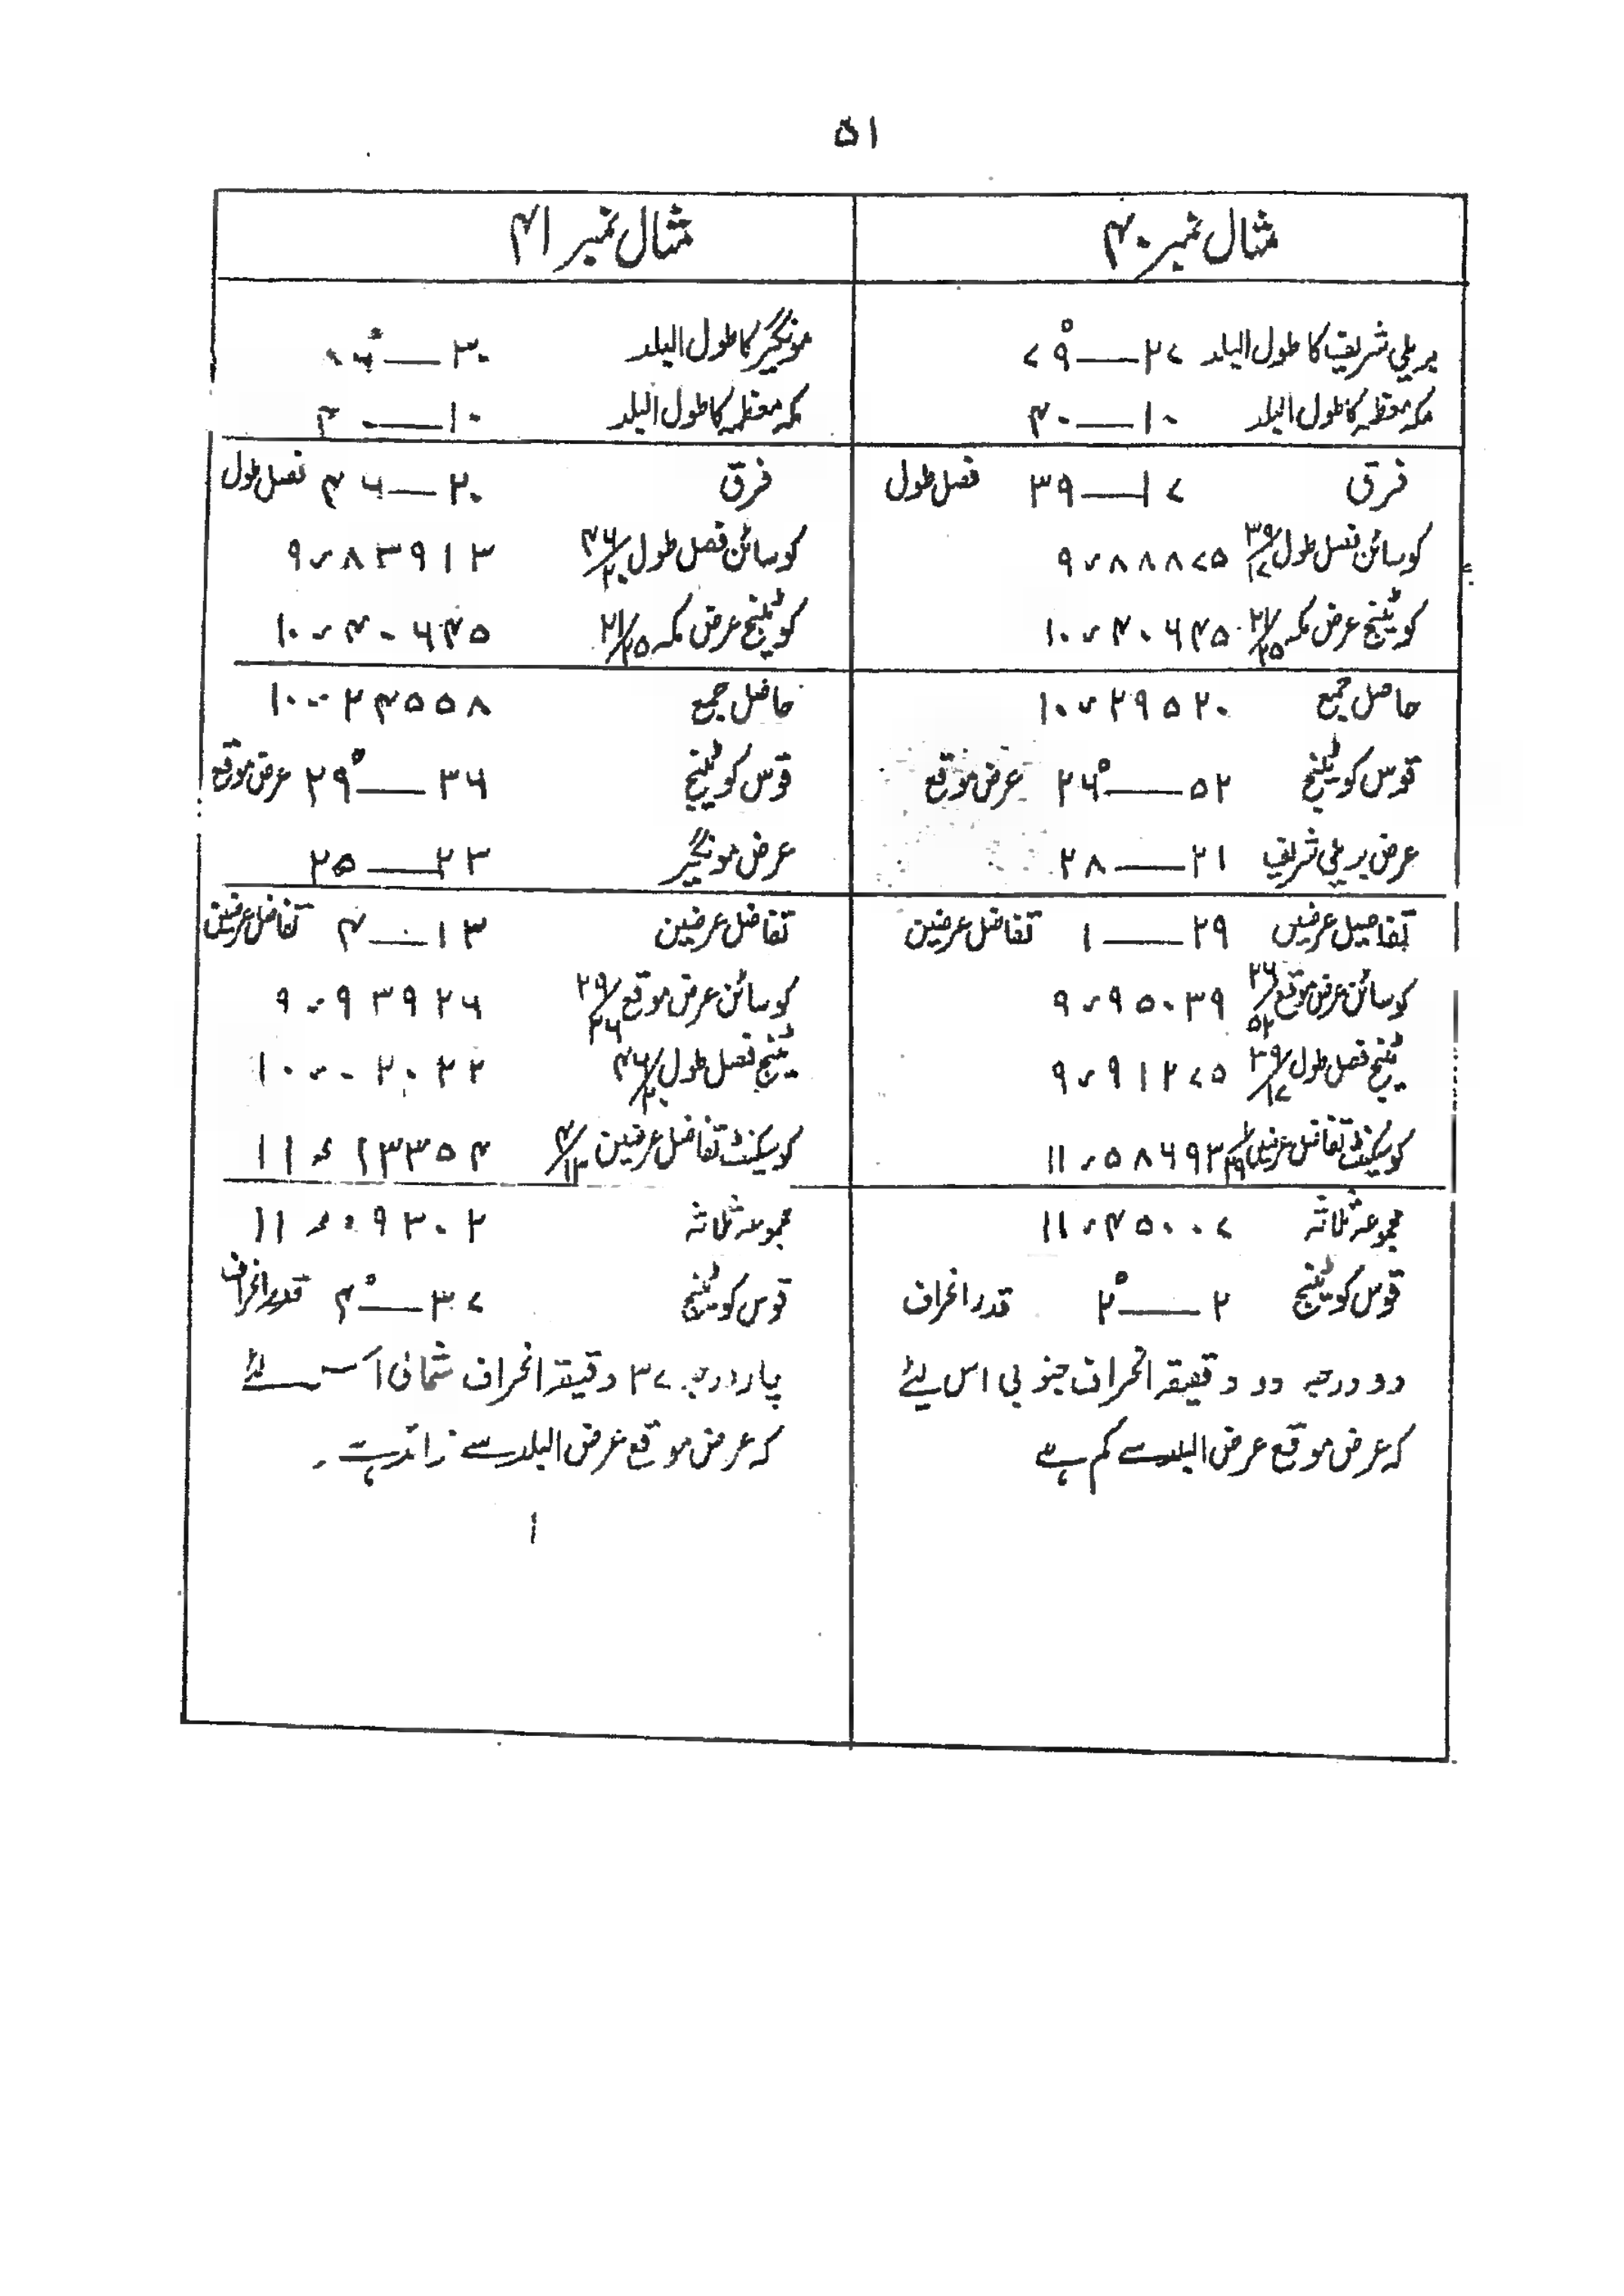 ۵۱
مثال نمبر ۴۰
بریلی شریف کا طول البلد ۲۷ — ۷۹°
مکہ معظمہ کا طول البلد ۱۰ — ۴۰
فرق ۱۷ — ۳۹ فصل طول
کوسائن فصل طول ۳۹/۱۷ ۹٫۸۸۸۷۵
کوٹینج عرض مکہ ۲۱/۲۵ ۱۰٫۴۰۶۴۵
حاصل جمع ۱۰٫۲۹۵۲۰
قوس کوٹینج ۵۲ — ۲۶° عرض موقع
عرض بریلی شریف ۲۱ — ۲۸
تفاصیل عرضین ۲۹ — ۱ تفاضل عرضین
کوسائن عرض موقع ۲۶/۵۲ ۹٫۹۵۰۳۹
ٹینج فصل طول ۳۹/۱۷ ۹٫۹۱۲۷۵
کوسیکنٹ تفاضل عرضین ۱/۲۹ ۱۱٫۵۸۶۹۳
مجموعہ ثلاثہ ۱۱٫۴۵۰۰۷
قوس کوٹینج ۲ — ۲° قدر انحراف
دو درجہ دو دقیقہ انحراف جنوبی اس لئے
کہ عرض موقع عرض البلد سے کم ہے
مثال نمبر ۴۱
مونگیر کا طول البلد ۳۰ — ۸۶°
مکہ معظمہ کا طول البلد ۱۰ — ۴۰
فرق ۲۰ — ۴۶ فصل طول
کوسائن فصل طول ۴۶/۲۰ ۹٫۸۳۹۱۳
کوٹینج عرض مکہ ۲۱/۲۵ ۱۰٫۴۰۶۴۵
حاصل جمع ۱۰٫۲۴۵۵۸
قوس کوٹینج ۳۶ — ۲۹° عرض موقع
عرض مونگیر ۲۳ — ۲۵
تفاضل عرضین ۱۳ — ۴ تفاضل عرضین
کوسائن عرض موقع ۲۹/۳۶ ۹٫۹۳۹۲۶
ٹینج فصل طول ۴۶/۲۰ ۱۰٫۰۲۰۲۲
کوسیکنٹ تفاضل عرضین ۴/۱۳ ۱۱٫۱۳۳۵۴
مجموعہ ثلاثہ ۱۱٫۰۹۳۰۲
قوس کوٹینج ۳۷ — ۴° قدر انحراف
درجہ ۳۷ دقیقہ انحراف شمالی لئے
کہ عرض موقع عرض البلد سے زائد ہے۔